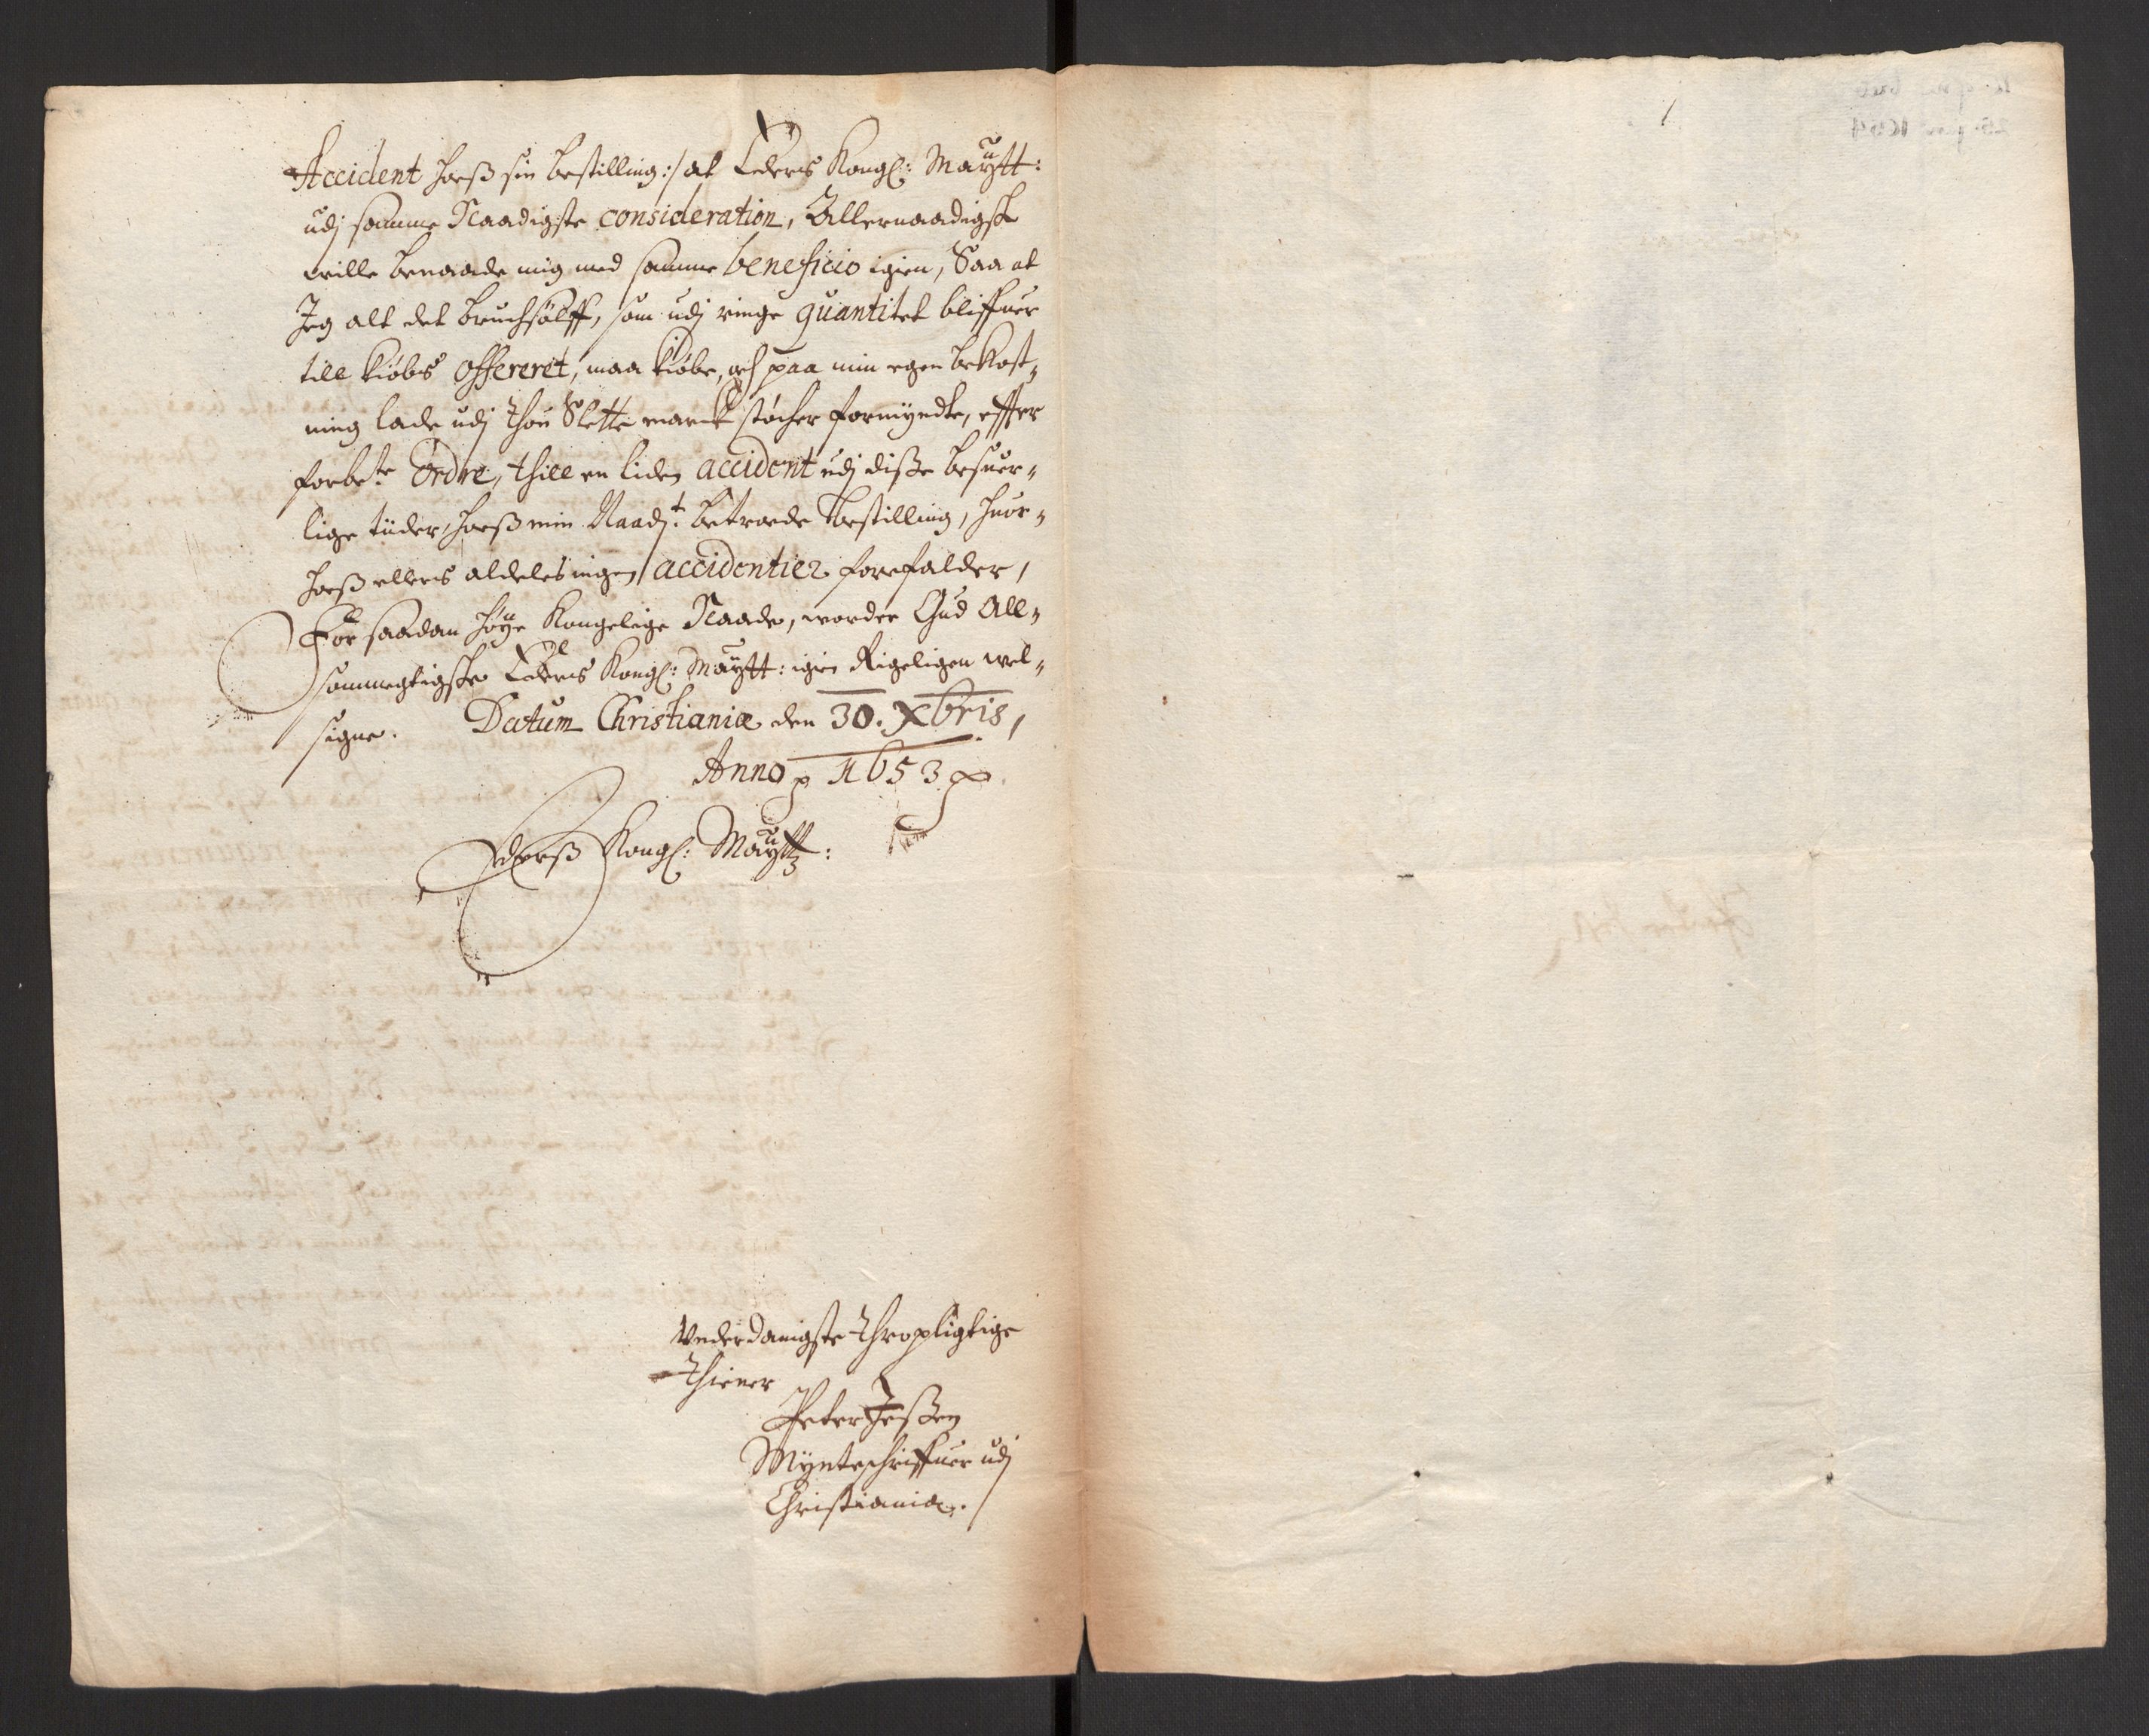 Accident hoeß sin bestilling:/ at Eders Kongl: Maytt:
udj samme Naadigste consideration, Allernaadigst
wille benaade mig med samme beneficio igien, Saa at
Jeg alt det bruchsølff, som udj ringe quantitet bliffuer
till kiøbs offereret, maa kiøbe, och paa min egen bekost,,
ning lade udj thou Slette marck støcher formyndte, effter
forbe.te Ordre, thill en liden accident udj disse besuer,,
lige tiider, hoeß min Naadj.t betroede bestilling, huor,,
hoeß ellers aldeles ingen accidentier forefalder,
For saadan høye Kongelige Naade, worder Gud All,,
sommegtigste Eders Kongl: Maytt: igien Rigeligen wel,,
signe. Datum Christianiæ den 30. Xbris,
Anno 1653
Ederß Kongl: Maytz:
Vnderdanigste thropligtige
thiener
Peter Jeßen
Mynteschriffuer udj
Christiania.